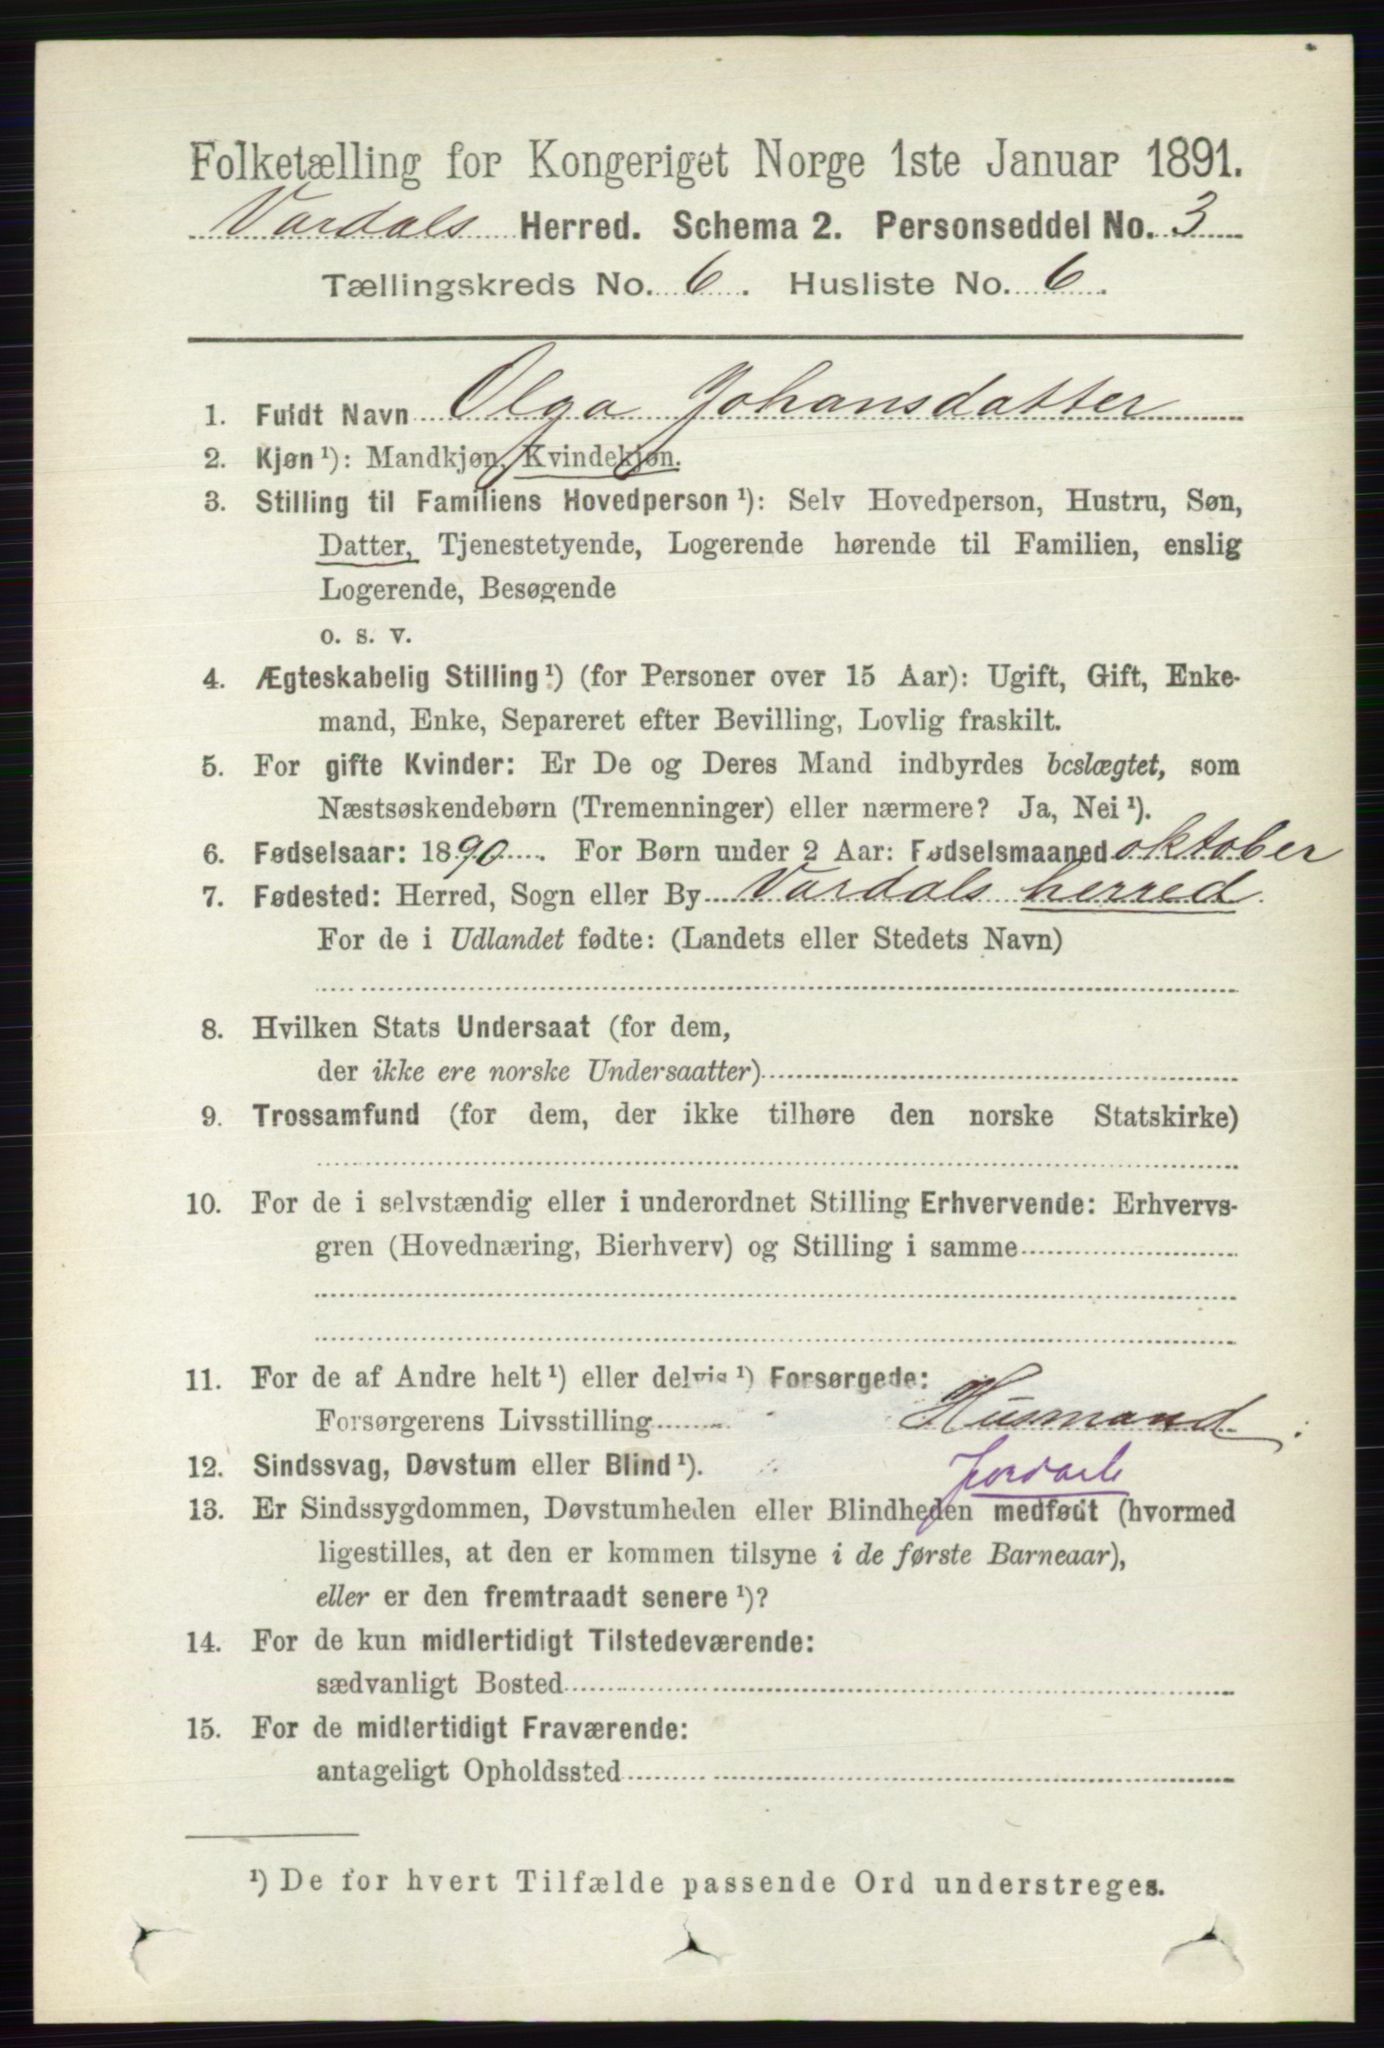 Folketælling for Kongeriget Norge 1ste Januar 1891.
Vardals Herred. Schema 2. Personseddel No. 3
Tællingskreds No. 6. Husliste No. 6.
1. Fuldt Navn Olga Johansdatter
2. Kjøn¹): Mandkjøn, Kvindekjøn.
3. Stilling til Familiens Hovedperson¹): Selv Hovedperson, Hustru, Søn,
Datter, Tjenestetyende, Logerende hørende til Familien, enslig
Logerende, Besøgende
o. s. v.
4. Ægteskabelig Stilling¹) (for Personer over 15 Aar): Ugift, Gift, Enke-
mand, Enke, Separeret efter Bevilling, Lovlig fraskilt.
5. For gifte Kvinder: Er De og Deres Mand indbyrdes beslægtet, som
Næstsøskendebørn (Tremenninger) eller nærmere? Ja, Nei¹).
6. Fødselsaar: 1890. For Børn under 2 Aar: Fødselsmaaned oktober
7. Fødested: Herred, Sogn eller By Vardals herred.
For de i Udlandet fødte: (Landets eller Stedets Navn)
8. Hvilken Stats Undersaat (for dem,
der ikke ere norske Undersaatter)
9. Trossamfund (for dem, der ikke tilhøre den norske Statskirke)
10. For de i selvstændig eller i underordnet Stilling Erhvervende: Erhvervs-
gren (Hovednæring, Bierhverv) og Stilling i samme
11. For de af Andre helt¹) eller delvis¹) Forsørgede:
Forsørgerens Livsstilling Husmand
12. Sindssvag, Døvstum eller Blind¹).
13. Er Sindssygdommen, Døvstumheden eller Blindheden medfødt (hvormed
ligestilles, at den er kommen tilsyne i de første Barneaar),
eller er den fremtraadt senere¹)?
14. For de kun midlertidigt Tilstedeværende:
sædvanligt Bosted
15. For de midlertidigt Fraværende:
antageligt Opholdssted
¹) De for hvert Tilfælde passende Ord understreges.